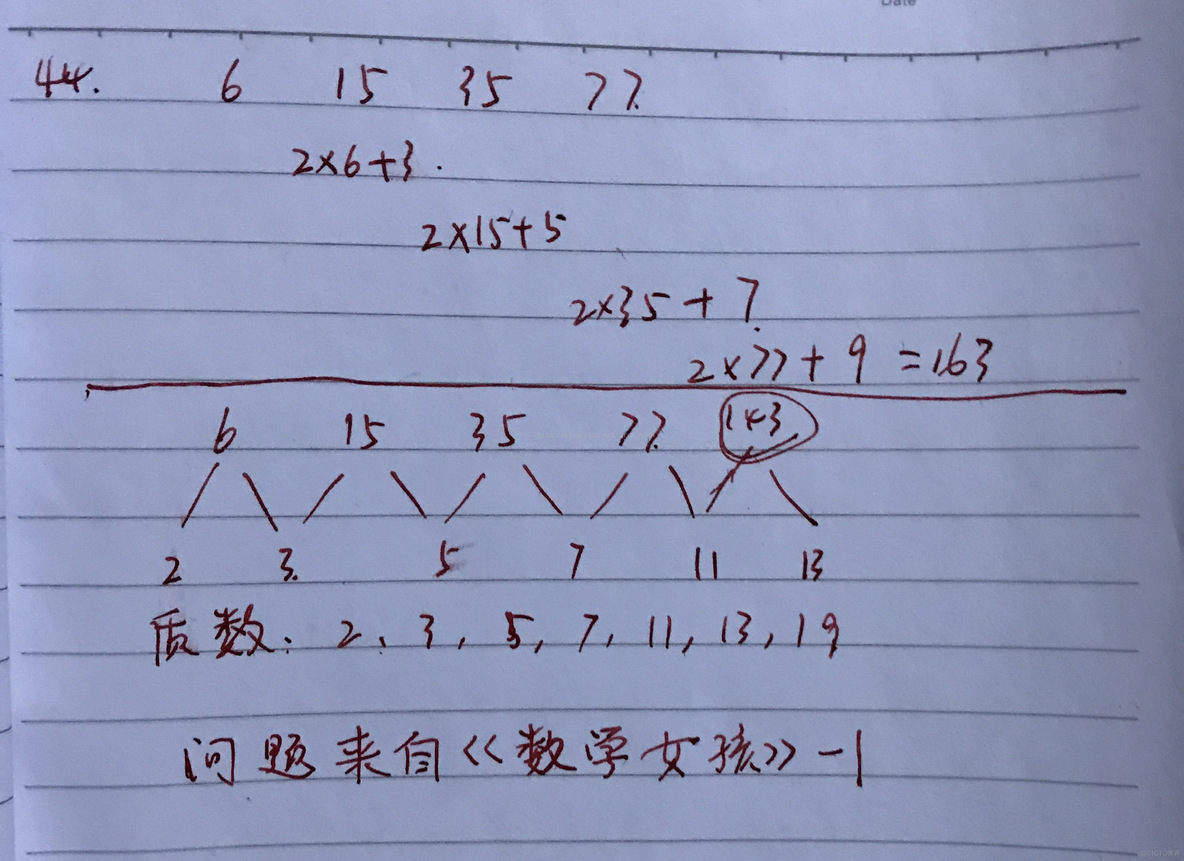 Date
44. 6 15 35 77
2×6+3.
2×15+5
2×35+7
2×77+9=163
6 15 35 77 143
2 3. 5 7 11 13
质数: 2, 3, 5, 7, 11, 13, 19
问题来自《数学女孩》-1